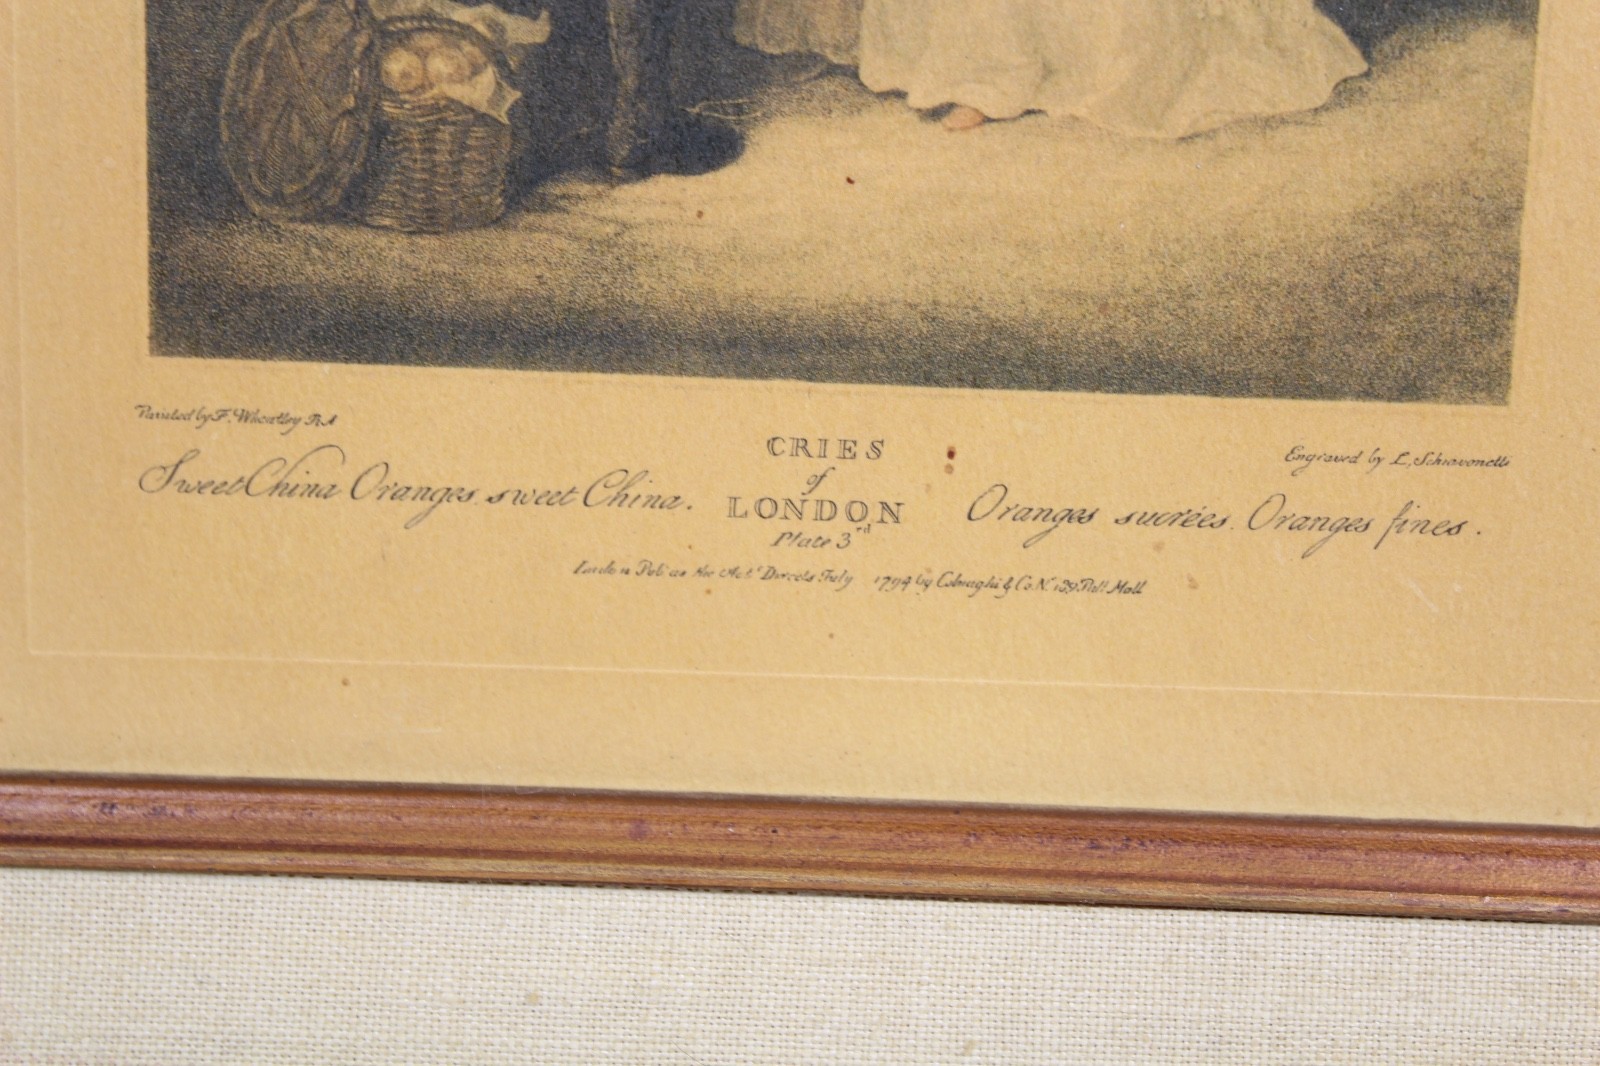 Painted by F. Wheatley R.A
Engraved by L. Schiavonetti
CRIES
of
LONDON
Plate 3rd
Sweet China Oranges, sweet China.
Oranges sucrées. Oranges fines.
London Pub as the Act Directs July 1794 by Colnaghi & Co. N. 132 Pall Mall